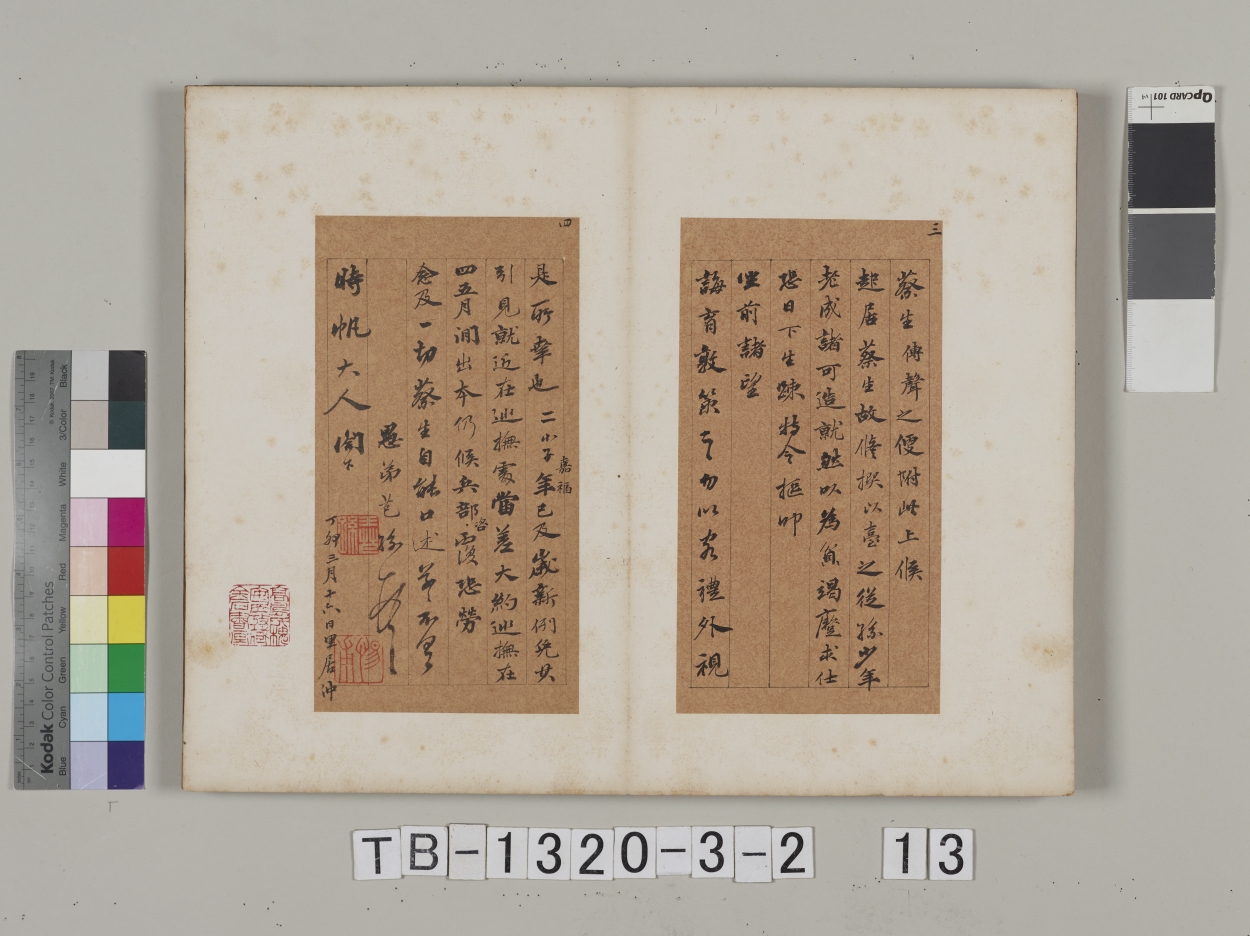 三
蔡生傳聲之便附此上候
起居蔡生故脩撰以臺之從孫少年
老成諸可造就然以為貧竭蹙求仕
恐日下生踈特令摳叩
坐前諸望
誨育敦策之勿以客禮外視
四
是所幸也二小子嘉福年已及歲新例免其
引見就近在巡撫處當差大約巡撫在
四五月間出本仍候兵部咨覆恐勞
念及一切蔡生自能口述草不
愚弟芑孫
時帆大人閣下
丁卯三月十六日里居沖
TB-1320-3-2 13
QPCARD 101
Kodak Color Control Patches
Blue Cyan Green Yellow Red Magenta White 3/Color Black